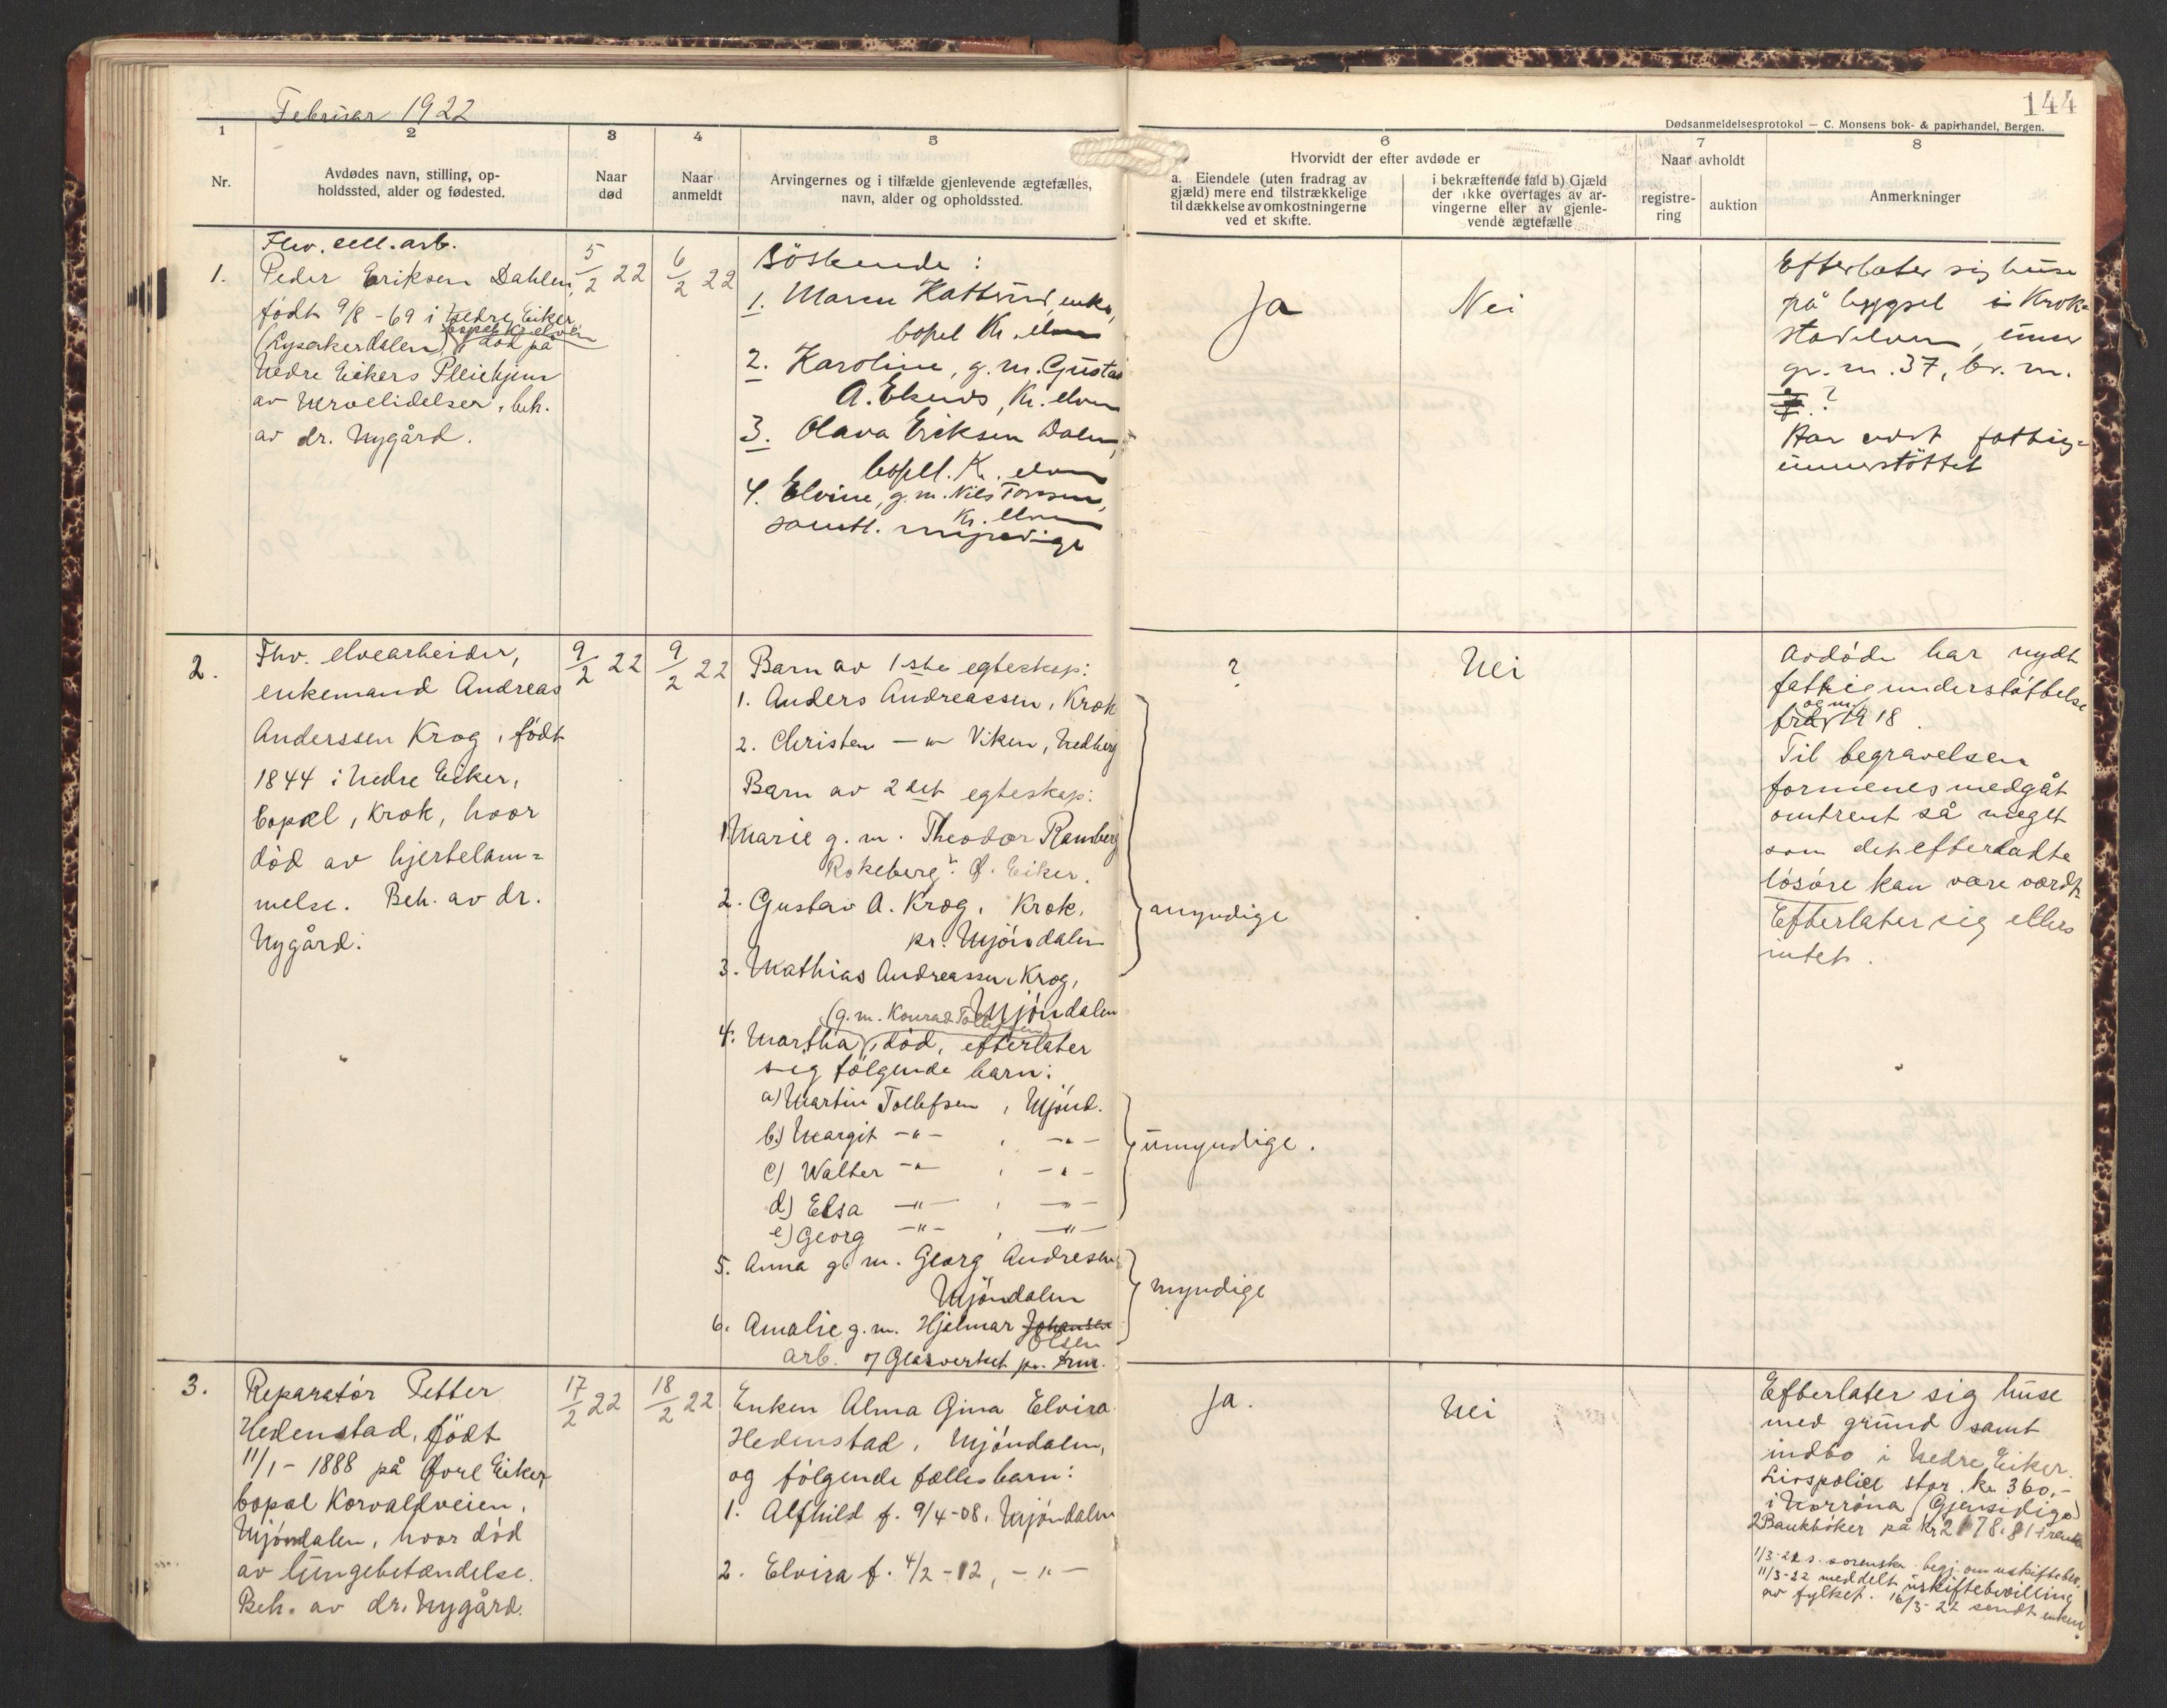 Februar 1922
144
Dødsanmeldelsesprotokol — C. Monsens bok- & papirhandel, Bergen.
1
2
3
4
5
6
7
8
Nr.
Avdødes navn, stilling, op-
holdssted, alder og fødested.
Naar
død
Naar
anmeldt
Arvingernes og i tilfælde gjenlevende ægtefælles,
navn, alder og opholdssted.
Hvorvidt der efter avdøde er
a. Eiendele (uten fradrag av
gjæld) mere end tilstrækkelige
til dækkelse av omkostningerne
ved et skifte.
i bekræftende fald b) Gjæld
der ikke overtages av ar-
vingerne eller av gjenle-
vende ægtefælle
Naar avholdt
registre-
ring
auktion
Anmerkninger
1.
Fhv. cell. arb.
Peder Eriksen Dahlen,
født 9/8 - 69 i Nedre Eiker
bopel Kr. elven
(Ryserkerdalen), død på
Nedre Eikers Pleiehjem
av Nervelidelser, beh.
av dr. Nygård.
5/2 22
6/2 22
Söskende:
1. Maren Kattrud, enke,
bopel Kr. elven
2. Karoline, g. m. Gustav
A. Ekerud, Kr. elven
3. Olava Eriksen Dalen,
bopel. Kr. elven
4. Elvine, g. m. Nils
Kr. elven
samtl. myndige
Ja
Nei
Efterlater sig huse
på bygsel i Krok-
stadelven, under
gr. nr. 37, br. nr.
?
Har vært fattig-
understöttet
2.
Fhv. elvearbeider,
enkemand Andreas
Anderssen Krog, født
1844 i Nedre Eiker,
bopæl, Krok, hvor
død av hjertelam-
melse. Beh. av dr.
Nygård.
9/2 22
9/2 22
Barn av 1ste egteskap:
1. Anders Andreassen, Krok
2. Christen — " — Viken, Nedberg
Barn av 2det egteskap:
1. Marie g. m. Theodor Ramberg
Rokeberg? Ø. Eiker.
2. Gustav A. Krog, Krok,
pr. Mjöndalen
3. Mathias Andreassen Krog,
Mjöndalen
(g. m. Konrad Tollefsen)
4. Martha, död, efterlater
sig følgende barn:
a) Martin Tollefsen, Mjönd.
b) Margit — " — , — " —
c) Walter — " — , — " —
d) Elsa — " — , — " —
e) Georg — " — , — " —
5. Anna g. m. Georg Andresen
Mjöndalen
6. Amalie g. m. Hjelmar Johansen
Olsen
arb. v/ Glasverket pr. Drm.
myndige
umyndige.
myndige
?
Nei
Avdøde har nydt
fattigunderstøttelse
fra og m. 1918.
Til begravelsen
formenes medgåt
omtrent så meget
som det efterladte
lösöre kan være værdt.
Efterlater sig ellers
intet.
3.
Reparatör Petter
Hedenstad, født
11/1 - 1888 på Øvre Eiker,
bopæl Korvaldveien,
Mjöndalen, hvor död
av lungebetændelse.
Beh. av dr. Nygård.
17/2 22
18/2 22
Enken Alma Gina Elvira
Hedenstad, Mjöndalen,
og følgende fællesbarn:
1. Alfhild f. 9/4-08, Mjöndalen
2. Elvira f. 4/2-12, — " —
Ja.
Nei
Efterlater sig huse
med grund samt
indbo i Nedre Eiker.
Livspolice stor kr. 360,-
i Norröna (Gjensidige)
2 Bankböker på kr 2178.81 + renter
1/3-22 s. sorenskr. begj. om uskiftebev.
11/3-22 meddelt uskiftebevilling
av fylket. 16/3-22 sendt enken.